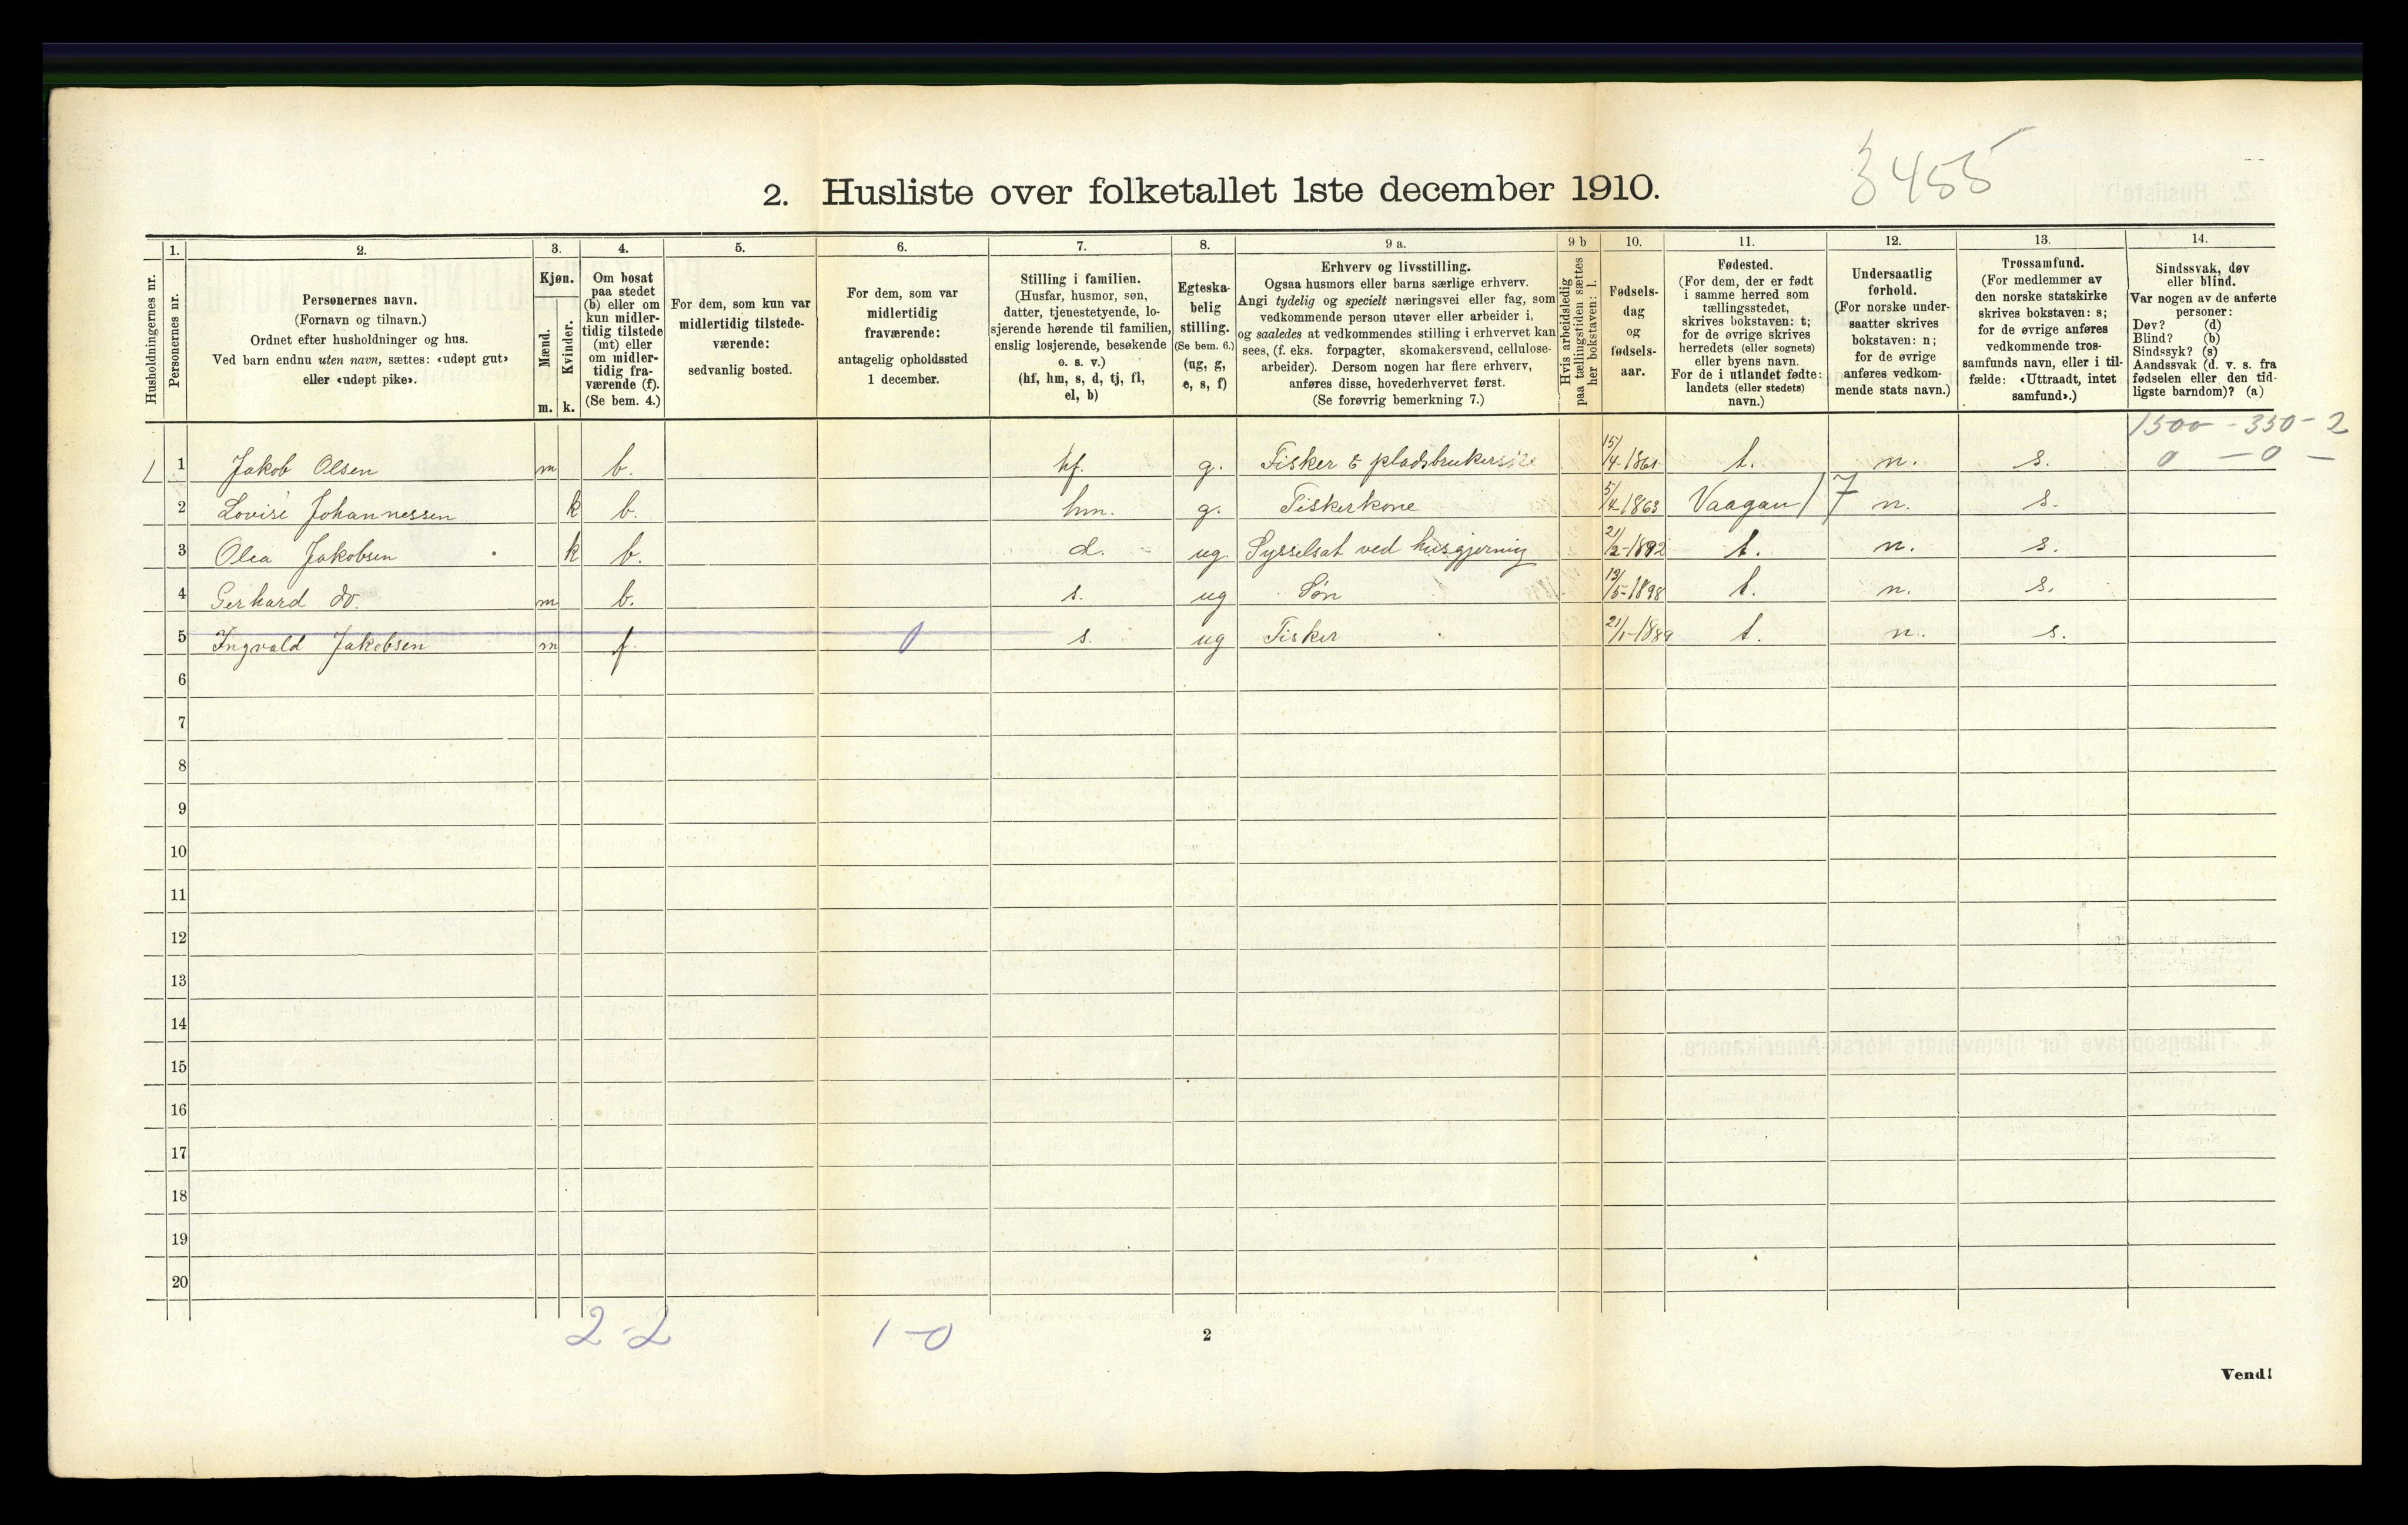 3455
2. Husliste over folketallet 1ste december 1910.
Husholdningernes nr.
1.
Personernes nr.
2.
Personernes navn.
(Fornavn og tilnavn.)
Ordnet efter husholdninger og hus.
Ved barn endnu uten navn, sættes: «udøpt gut»
eller «udøpt pike».
3.
Kjøn.
Mænd.
Kvinder.
m. k.
4.
Om bosat
paa stedet
(b) eller om
kun midler-
tidig tilstede
(mt) eller
om midler-
tidig fra-
værende (f).
(Se bem. 4.)
5.
For dem, som kun var
midlertidig tilstede-
værende:
sedvanlig bosted.
6.
For dem, som var
midlertidig
fraværende:
antagelig opholdssted
1 december.
7.
Stilling i familien.
(Husfar, husmor, søn,
datter, tjenestetyende, lo-
sjerende hørende til familien,
enslig losjerende, besøkende
o. s. v.)
(hf, hm, s, d, tj, fl,
el, b)
8.
Egteska-
belig
stilling.
(Se bem. 6.)
(ug, g,
e, s, f)
9 a.
Erhverv og livsstilling.
Ogsaa husmors eller barns særlige erhverv.
Angi tydelig og specielt næringsvei eller fag, som
vedkommende person utøver eller arbeider i,
og saaledes at vedkommendes stilling i erhvervet kan
sees, (f. eks. forpagter, skomakersvend, cellulose-
arbeider). Dersom nogen har flere erhverv,
anføres disse, hovederhvervet først.
(Se forøvrig bemerkning 7.)
9 b
Hvis arbeidsledig
paa tællingstiden sættes
her bokstaven: l.
10.
Fødsels-
dag
og
fødsels-
aar.
11.
Fødested.
(For dem, der er født
i samme herred som
tællingsstedet,
skrives bokstaven: t;
for de øvrige skrives
herredets (eller sognets)
eller byens navn.
For de i utlandet fødte:
landets (eller stedets)
navn.)
12.
Undersaatlig
forhold.
(For norske under-
saatter skrives
bokstaven: n;
for de øvrige
anføres vedkom-
mende stats navn.)
13.
Trossamfund.
(For medlemmer av
den norske statskirke
skrives bokstaven: s;
for de øvrige anføres
vedkommende tros-
samfunds navn, eller i til-
fælde: «Uttraadt, intet
samfund».)
14.
Sindssvak, døv
eller blind.
Var nogen av de anførte
personer:
Døv? (d)
Blind? (b)
Sindssyk? (s)
Aandssvak (d. v. s. fra
fødselen eller den tid-
ligste barndom)? (a)
1500 - 350 - 2
1 1 Jakob Olsen m b. hf. g. Fisker & pladsbruker 15/4-1861 t. n. s. 0 - 0 -
2 Lovise Johannessen k b. hm. g. Fiskerkone 5/4-1863 Vaagan 17 n. s.
3 Olea Jakobsen k b. d. ug Sysselsat ved husgjerning 21/2-1892 t. n. s.
4 Gerhard do. m b. s. ug Søn 13/5-1898 t. n. s.
5 Ingvald Jakobsen m f. 0 s. ug Fisker 21/1-1889 t. n. s.
6
7
8
9
10
11
12
13
14
15
16
17
18
19
20
2-2 1-0
2
Vend!